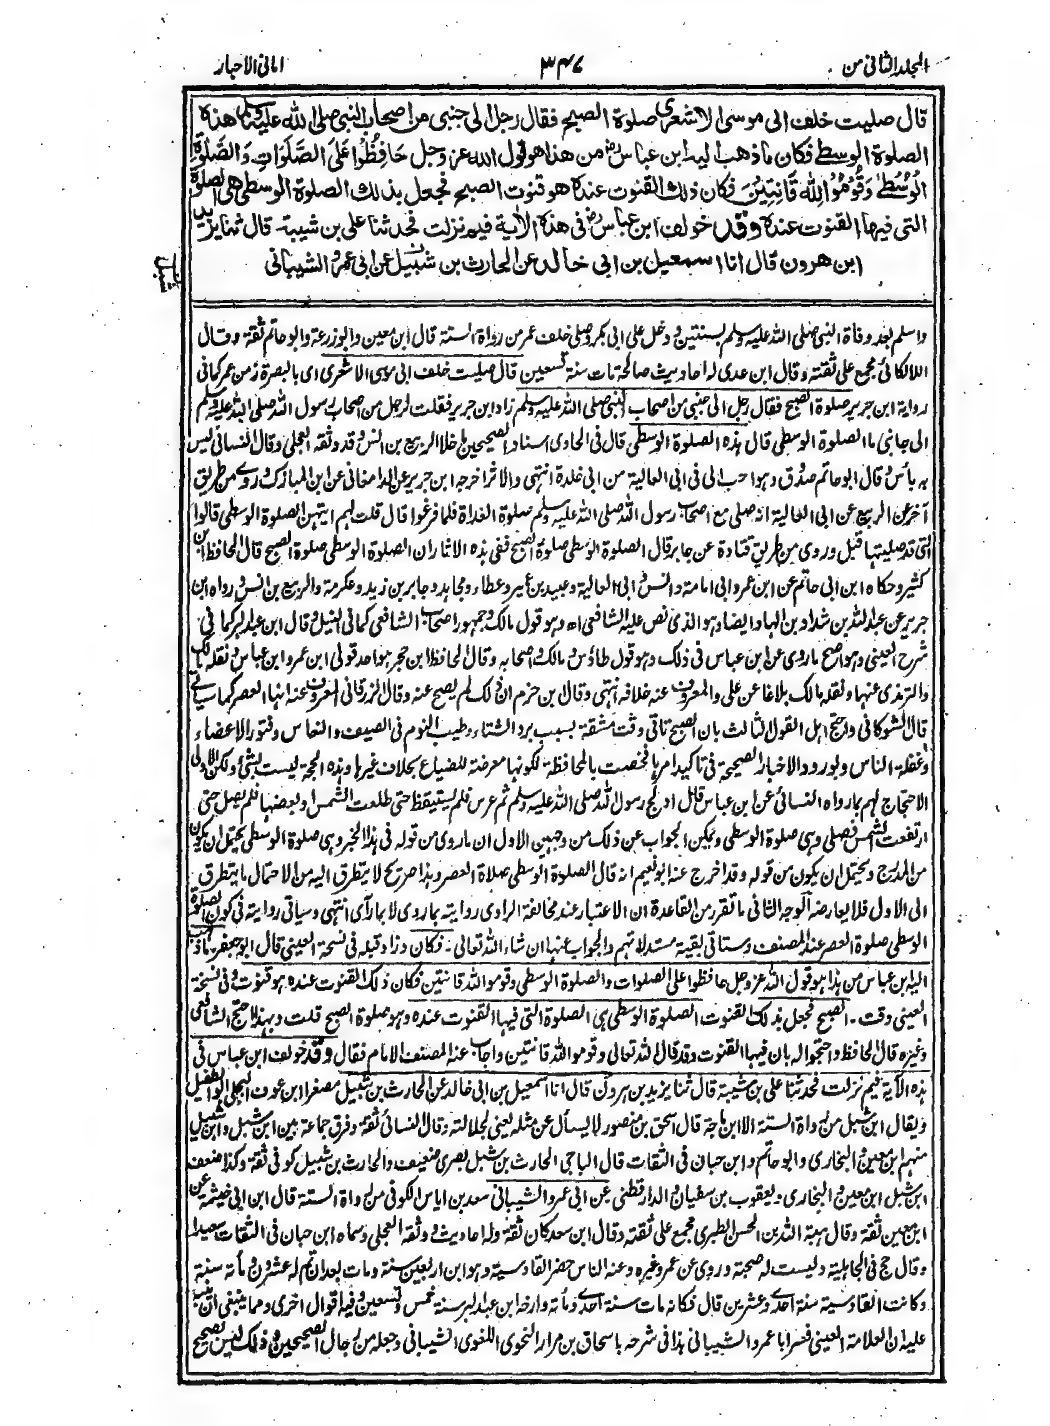 المجلد الثانی من
٣٤٧
امانی الاحبار
قال صلیت خلف ابی موسی الاشعری صلوة الصبح فقال رجل الی جنبی من اصحاب النبی صلی الله علیه وسلم هذه
الصلوة الوسطی فکان ما ذهب الیه ابن عباس رض من هذا هو قول الله عز وجل حَافِظُوا عَلَی الصَّلَوَاتِ وَالصَّلٰوةِ
الْوُسْطٰی وَقُوْمُوْا لِلّٰهِ قَانِتِیْنَ فکان ذلك القنوت عنده هو قنوت الصبح فجعل بذلك الصلوة الوسطی هی الصلوة
التی فیها القنوت عنده وقد خولف ابن عباس رض فی هذه الآیة فیم نزلت فحدثنا علی بن شیبة قال ثنا یزید
ابن هرون قال انا اسمعیل بن ابی خالد عن الحارث بن شبیل عن ابی عمرو الشیبانی
واسلم بعد وفاة النبی صلی الله علیه وسلم بسنتین ودخل علی ابی بکر وصلی خلف عمر من رواة الستة قال ابن معین وابوزرعة وابو حاتم ثقة وقال
اللالکائی مجمع علی ثقته وقال ابن عدی له احادیث صالحة مات سنة تسعین قال صلیت خلف ابی موسی الاشعری ای بالبصرة زمن عمر کما فی
روایة ابن جریر صلوة الصبح فقال رجل الی جنبی من اصحاب النبی صلی الله علیه وسلم زاد ابن جریر فقلت لرجل من اصحاب رسول الله صلی الله علیه وسلم
الی جانبی ما الصلوة الوسطی قال هذه الصلوة الوسطی قال فی الحاوی اسناد الصحیحین خلا الربیع بن انس وقد وثقه العجلی وقال النسائی لیس
به بأس وقال ابو حاتم صدوق وهو احب الی فی ابی العالیة من ابی خلدة انتهی والاثر اخرجه ابن جریر عن الدامغانی عن ابن المبارک وروی من طریق
آخر عن الربیع عن ابی العالیة انه صلی مع اصحاب رسول الله صلی الله علیه وسلم صلوة الغداة فلما فرغوا قال قلت لهم ایتهن الصلوة الوسطی قالوا
التی قد صلیتها قبل وروی من طریق قتادة عن جابر قال الصلوة الوسطی صلوة الصبح ففی هذه الاثار ان الصلوة الوسطی صلوة الصبح قال الحافظ ابن
کثیر وحکاه ابن ابی حاتم عن ابن عمر وابی امامة وانس وابی العالیة وعبید بن عمیر وعطاء ومجاهد وجابر بن زید وعکرمة والربیع بن انس ورواه ابن
جریر عن عبدالله بن شداد بن الهاد ایضا وهو الذی نص علیه الشافعی اه وهو قول مالک وجمهور اصحاب الشافعی کما فی النیل وقال ابن عبدالبر کما فی
شرح العینی وهو اصح ما روی عن ابن عباس فی ذلک وهو قول طاؤس ومالک واصحابه وقال الحافظ ابن حجر هو احد قولی ابن عمر وابن عباس ونقله مالک
والترمذی عنهما ونقله مالک بلاغا عن علی والمعروف عنه خلافه انتهی وقال بن حزم ان ذلک لم یصح عنه وقال الزرقانی المعروف عنه انها العصر کما سیأتی
قال الشوکانی واحتج اهل القول الثالث بان الصبح تأتی وقت مشقة بسبب برد الشتاء وطیب النوم فی الصیف والنعاس وفتور الاعضاء
وغفلة الناس وبورود الاخبار الصحیحة فی تاکید امرها فخصت بالمحافظة لکونها معرضة للضیاع بخلاف غیرها وهذه الحجة لیست بشئ ولکن الاولی
الاحتجاج لهم بما رواه النسائی عن ابن عباس قال ادلج رسول الله صلی الله علیه وسلم ثم عرس فلم یستیقظ حتی طلعت الشمس او بعضها فلم یصل حتی
ارتفعت الشمس فصلی وهی صلوة الوسطی ویمکن الجواب عن ذلک من وجهین الاول ان ما روی من قوله فی هذا الخبر وهی صلوة الوسطی یحتمل ان یکون
من المدرج ویحتمل ان یکون من قوله وقد اخرج عنه ابو نعیم انه قال الصلوة الوسطی صلاة العصر وهذا صریح لا یتطرق الیه من الاحتمال ما یتطرق
الی الاول فلا یعارضه الوجه الثانی ما تقرر من القاعدة ان الاعتبار عند مخالفة الراوی روایته بما روی لا بما رآی انتهی وسیأتی روایته فی کون الصلوة
الوسطی صلوة العصر عند المصنف وستأتی بقیة مستدلاتهم والجواب عنها ان شاء الله تعالی ۔ فکان وزاد قبله فی نسخة العینی قال ابو جعفر ما ذهب
الیه ابن عباس من هذا هو قول الله عز وجل حافظوا علی الصلوات والصلوة الوسطی وقوموا لله قانتین فکان ذلک القنوت عنده هو قنوت وفی نسخة
العینی وقت ۔ الصبح فجعل بذلک القنوت الصلوة الوسطی هی الصلوة التی فیها القنوت عنده وهو صلوة الصبح قلت وبهذا احتج الشافعی
وغیره قال الحافظ واحتجوا له بان فیها القنوت وقد قال الله تعالی وقوموا لله قانتین واجاب عنه المصنف الامام فقال وقد خولف ابن عباس فی
هذه الآیة فیم نزلت فحدثنا علی بن شیبة قال ثنا یزید بن هرون قال انا اسمعیل بن ابی خالد عن الحارث بن شبیل مصغرا ابن عوف البجلی ابو الطفیل
ویقال ابن شبل من رواة الستة الا ابن ماجة قال اسحق بن منصور لا یسأل عن مثله یعنی لجلالته وقال النسائی ثقة وفرق جماعة بین ابن شبل وابن شبیل
منهم ابن معین والبخاری وابو حاتم وابن حبان فی الثقات قال الباجی الحارث بن شبل بصری ضعیف والحارث بن شبیل کوفی ثقة وکذا ضعف
ابن شبل ابن معین والبخاری ویعقوب بن سفیان والدارقطنی عن ابی عمرو الشیبانی سعد بن ایاس الکوفی من رواة الستة قال ابن ابی خیثمة عن
ابن معین ثقة وقال هبة الله بن الحسن الطبری مجمع علی ثقته وقال ابن سعد کان ثقة وله احادیث ووثقه العجلی وسماه ابن حبان فی الثقات سعیدا
وقال حج فی الجاهلیة ولیست له صحبة وروی عن عمر وغیره وعنه الناس حضر القادسیة وهو ابن اربعین سنة ومات بعد ان تم له عشرون ومأئة سنة
وکانت القادسیة سنة احدی وعشرین قال فکانه مات سنة احدی ومأئة وارخه ابن عبدالبر سنة خمس وتسعین وفیه اقوال اخری ومما ینبغی ان ینبه
علیه ان العلامة العینی فسر ابا عمرو الشیبانی هذا فی شرحه باسحاق بن مرار النحوی اللغوی الشیبانی وجعله من رجال الصحیحین وذلک لیس بصحیح